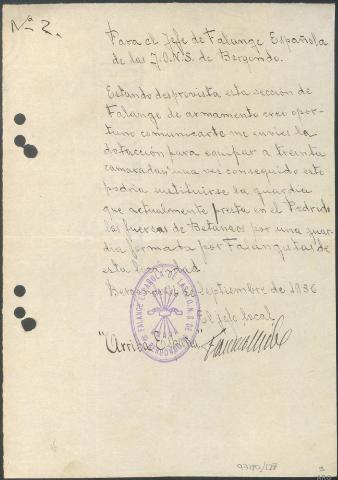 Nº 2.
Para el Jefe de Falange Española
de las J.O.N.S. de Bergondo.
Estando desprovista esta sección de
Falange de armamento creo opor-
tuno comunicarte me envies la
dotacción para equipar a treinta
camaradas, una vez conseguido esto
podria sustituirse la guardia
que actualmente presta en el Pedrido
las fuerzas de Betanzos por una guar-
dia formada por Falangistas de
esta
Septiembre de 1936
El jefe local
"Arriba España"
FALANGE ESPAÑOLA DE LAS J.O.N.S. DE